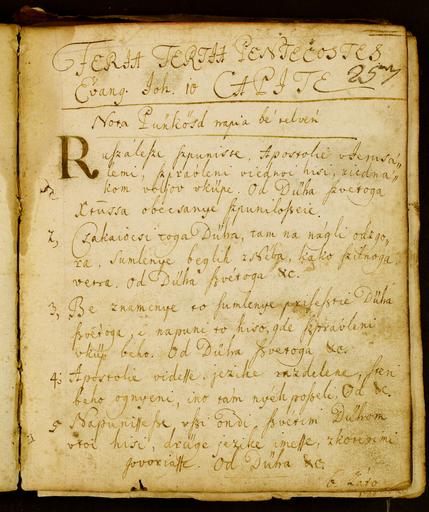 FERIA TERTIA PENTECOSTES
Evang. Joh. 10 CAPITE
25
Nota Pünkösd napia bé telvén
Ruszálsze szpuniste, Apostolie vJerusa„
lemi, szpravleni viednoi hisi, ziedna„
kom volyov vküpe. Od Düha Szvetoga
Xtussa obecsanye szpunilosseie.
2, Csakaiocsi toga Düha, tam na nágli odzgo„
ra, sumlenye beglih znéba, kako szilnoga
vetra. Od Düha Szvétoga &c.
3, Be znamenye to sumlenye prisesztie Düha
Szvétoga, i napuni to hiso, gde szpravleni
vküp beho. Od Düha Szvetoga &c.
4, Apostolie videsse jezike razdelene, sten
beho ognyeni, ino tam nyéh poszeli, Od &c.
5 Napunissesze vszi ondi Szvetim Dühom
vtoi hisi, drüge jezike imesse, zkoterimi
govoriasse. Od Düha &c.
6. Záto